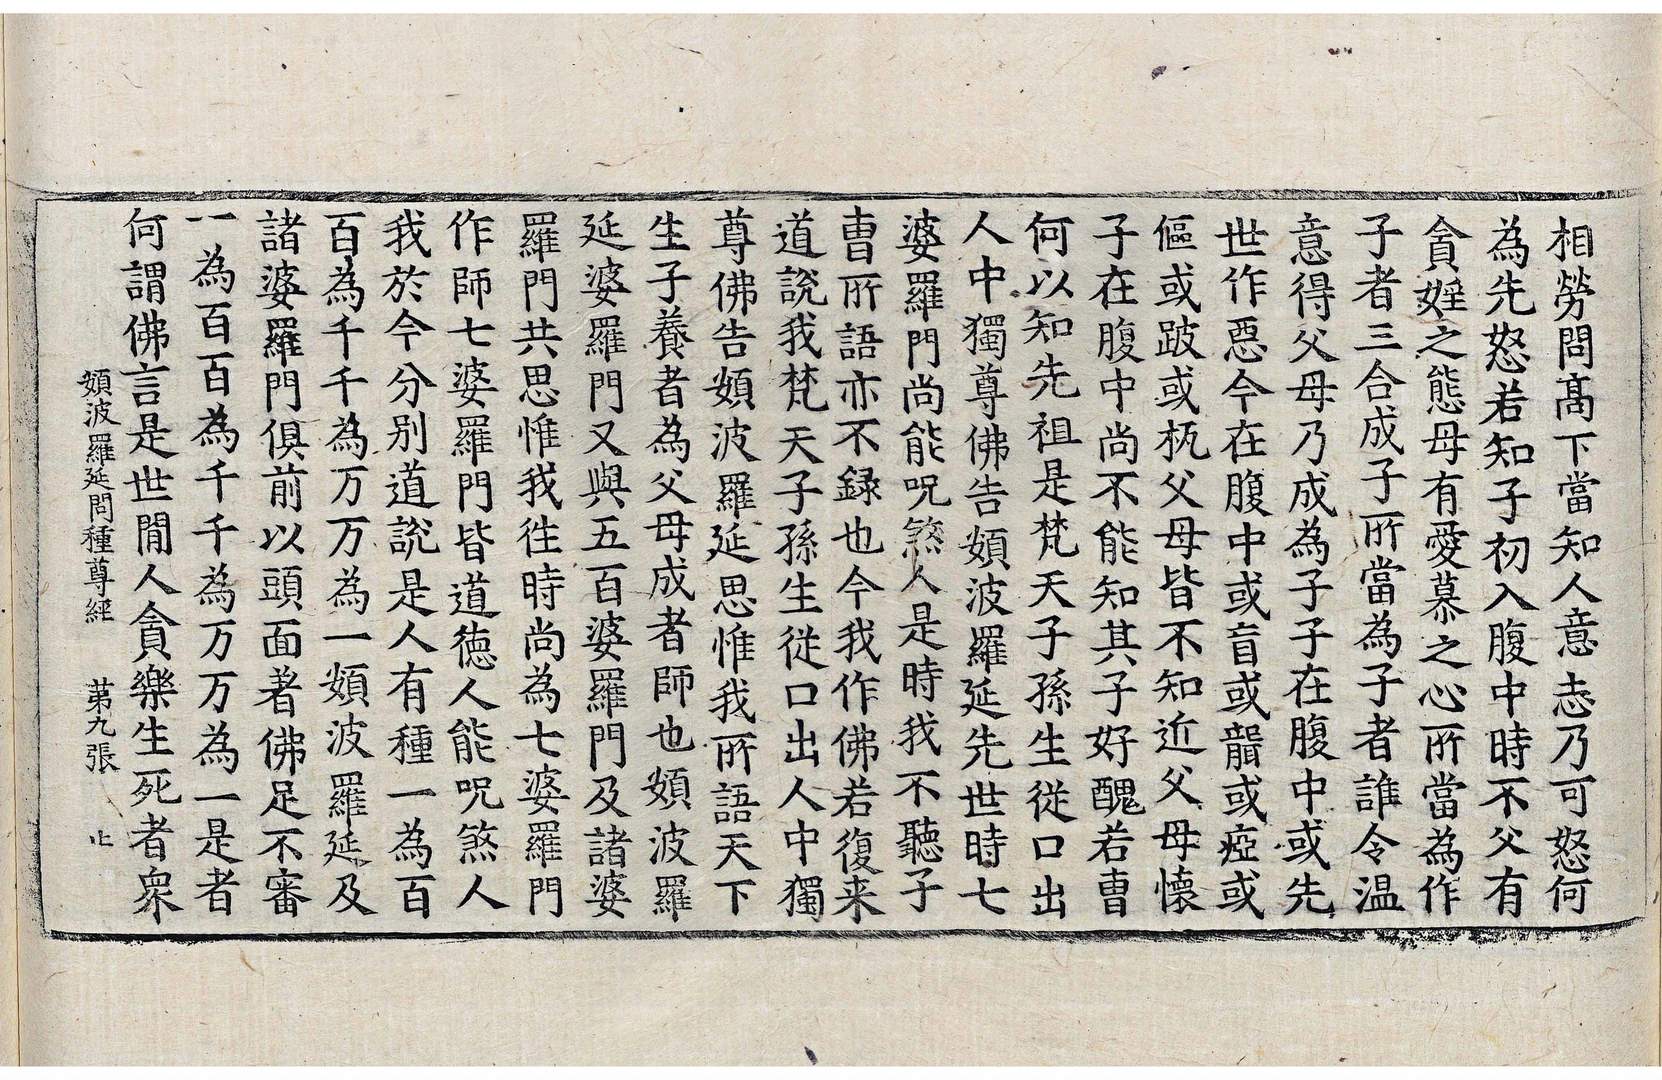 相勞問髙下當知人意志乃可怒何
為先怒若知子初入腹中時不父有
貪婬之態母有愛慕之心所當為作
子者三合成子所當為子者誰令温
意得父母乃成為子子在腹中或先
世作惡今在腹中或盲或聾或瘂或
傴或跛或𣏌父母皆不知近父母懷
子在腹中尚不能知其子好醜若曹
何以知先祖是梵天子孫生従口出
人中獨尊佛告頞波羅延先世時七
婆羅門尚能呪煞人是時我不聽子
曹所語亦不録也今我作佛若復来
道說我梵天子孫生従口出人中獨
尊佛告頞波羅延思惟我所語天下
生子養者為父母成者師也頞波羅
延婆羅門又與五百婆羅門及諸婆
羅門共思惟我往時尚為七婆羅門
作師七婆羅門皆道徳人能呪煞人
我於今分別道說是人有種一為百
百為千千為万万為一頞波羅延及
諸婆羅門俱前以頭面著佛足不審
一為百百為千千為万万為一是者
何謂佛言是世間人貪樂生死者衆
頞波羅延問種尊經 第九張